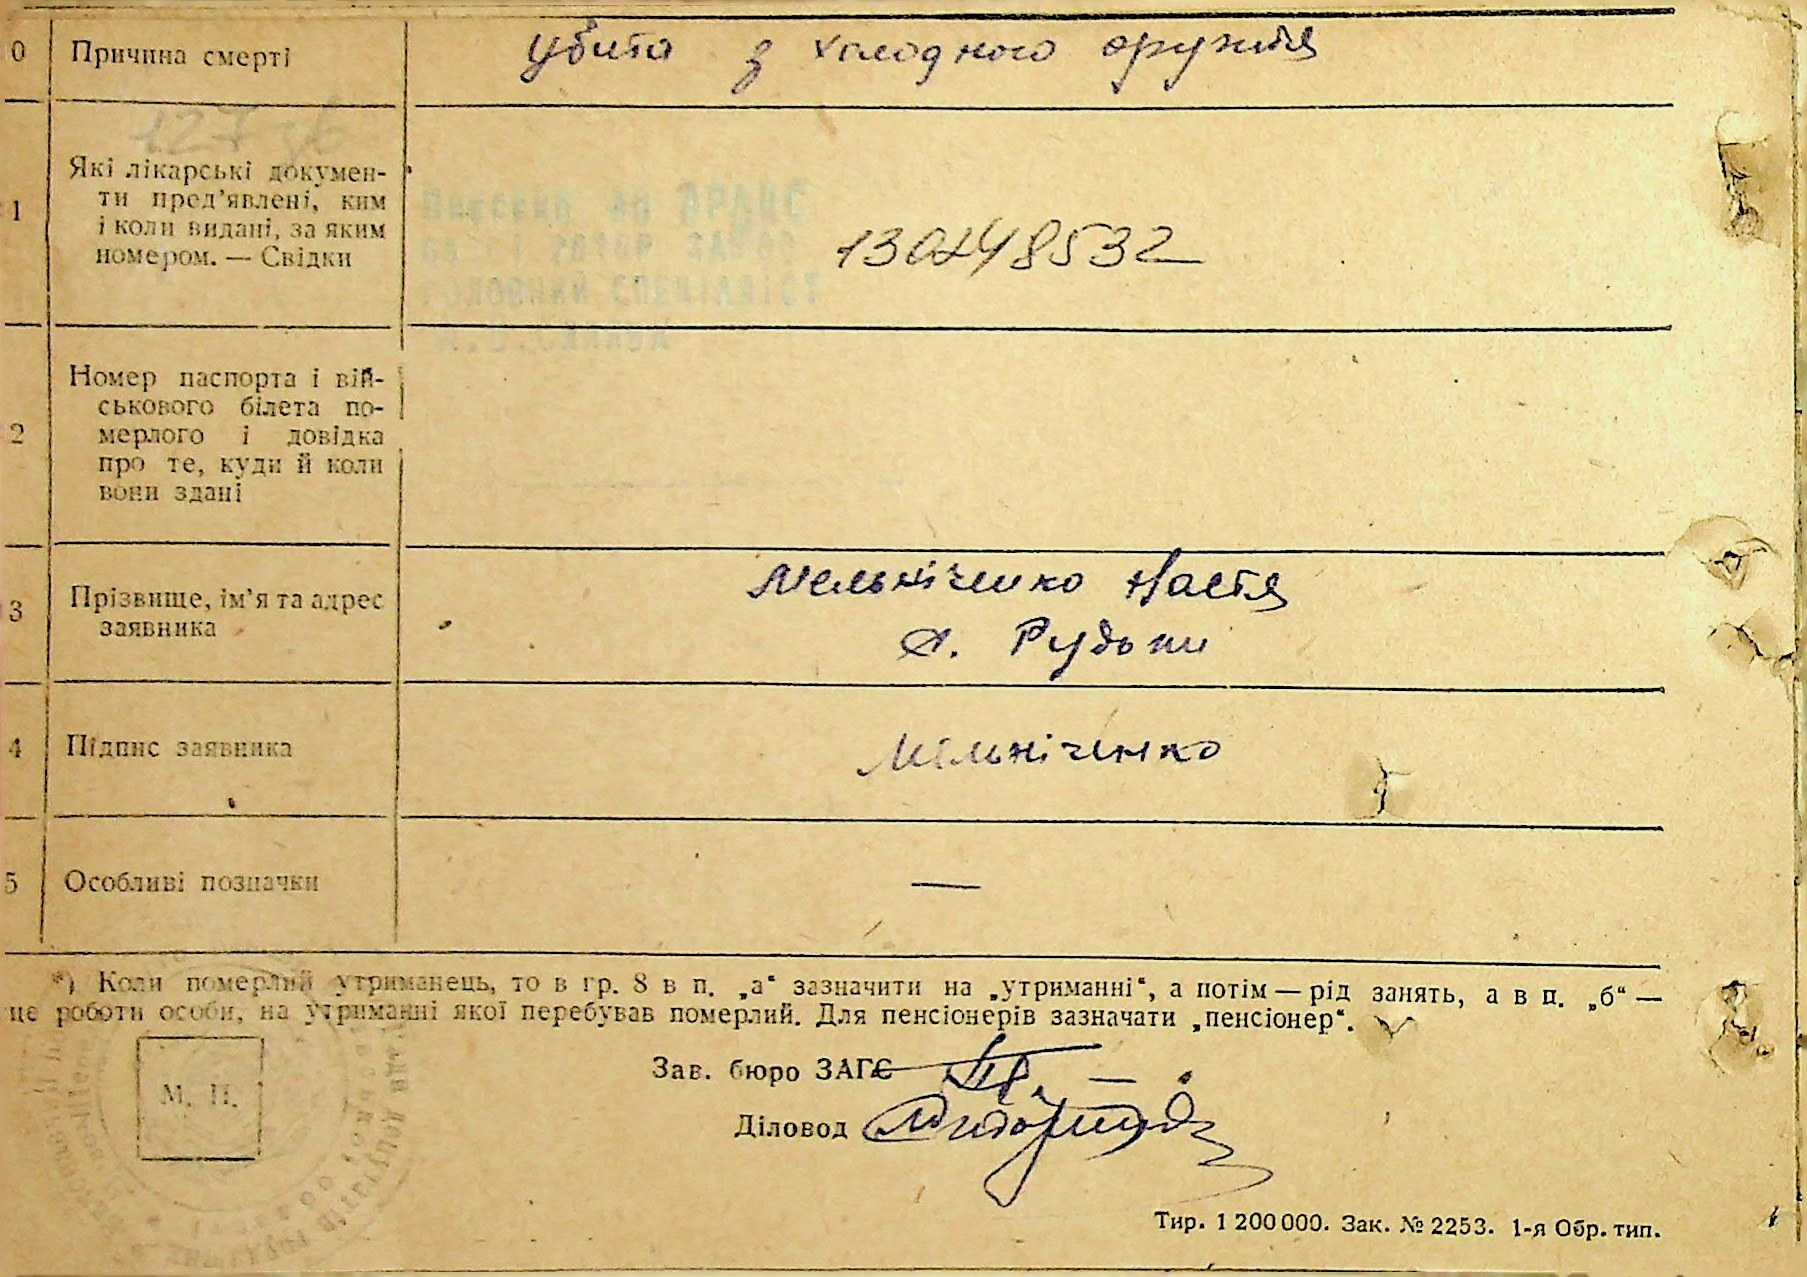 0 Причина смерті убита з холодного оружия
127 зв
1 Які лікарські докумен-
ти пред'явлені, ким
і коли видані, за яким
номером. — Свідки
ГОЛОВНИЙ СПЕЦІАЛІСТ
2 Номер паспорта і вій-
ськового білета по-
мерлого і довідка
про те, куди й коли
вони здані
3 Прізвище, ім'я та адрес
заявника
Мельніченко Настя
с.
4 Підпис заявника Мельніченко
5 Особливі позначки —
*) Коли померлий утриманець, то в гр. 8 в п. „а“ зазначити на „утриманні“, а потім — рід занять, а в п. „б“ —
це роботи особи, на утриманні якої перебував померлий. Для пенсіонерів зазначати „пенсіонер“.
Зав. бюро ЗАГС
М. П.
Діловод
Тир. 1 200 000. Зак. № 2253. 1-я Обр. тип.